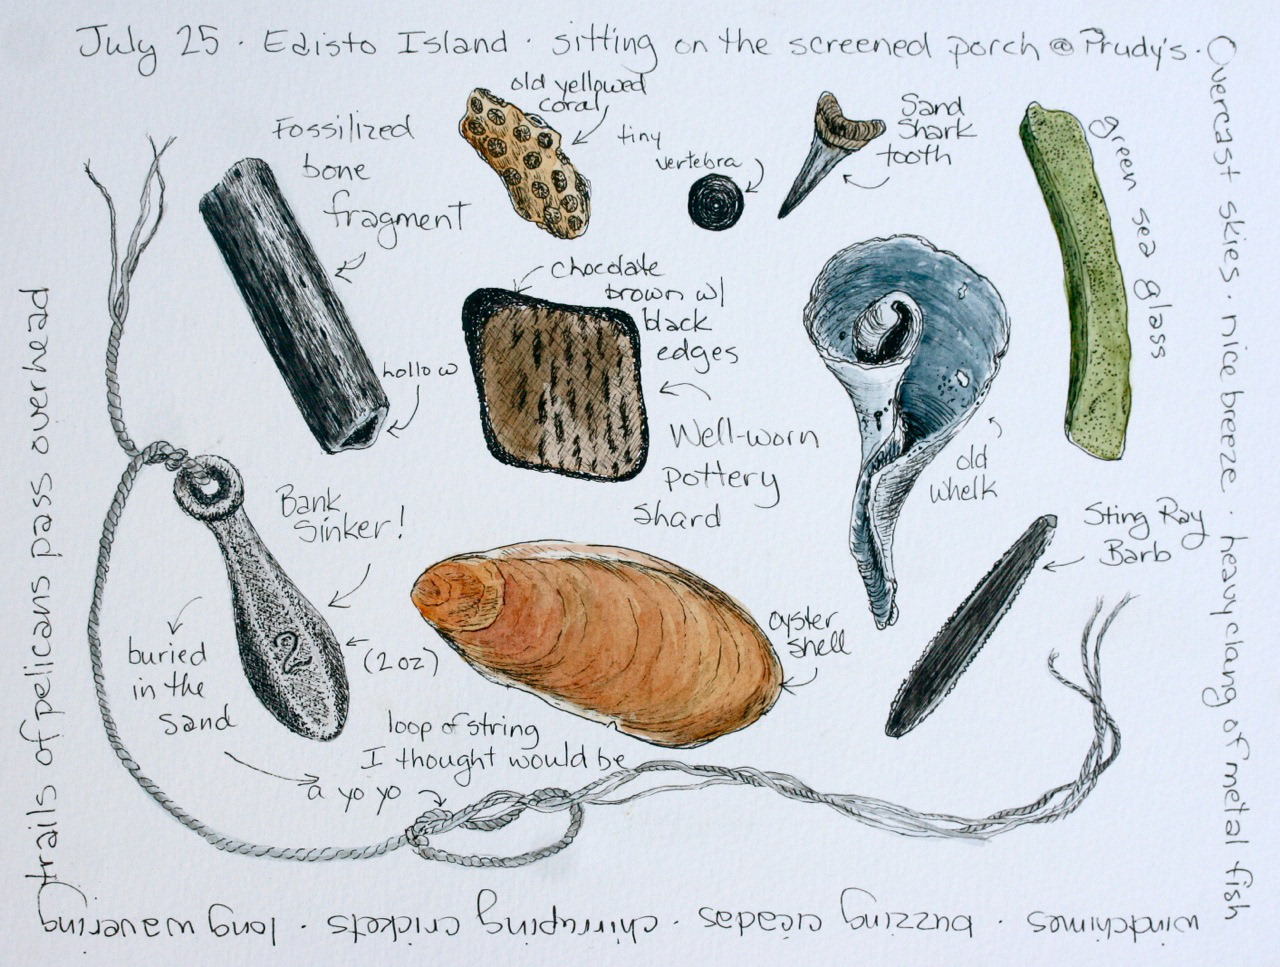 July 25 · Edisto Island · sitting on the screened porch @ Prudy's ·
Overcast skies · nice breeze · heavy clang of metal fish
windchimes · buzzing cicadas · chirruping crickets · long wavering
trails of pelicans pass overhead
Fossilized
bone
fragment
hollow
old yellowed
coral
tiny
vertebra
Sand
Shark
tooth
green sea glass
chocolate
brown w/
black
edges
Well-worn
pottery
shard
old
whelk
Bank
Sinker!
2
(2 oz)
buried
in the
sand
oyster
shell
Sting Ray
Barb
loop of string
I thought would be
a yo yo